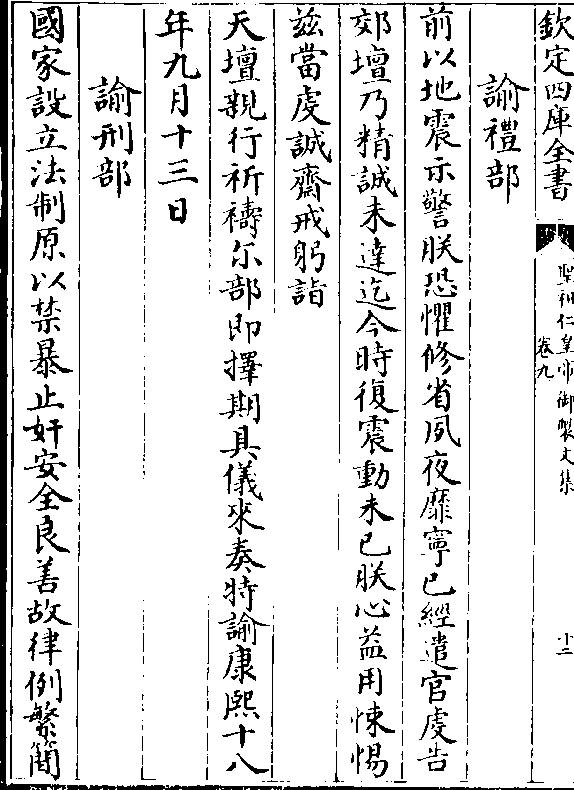 欽定四庫全書
聖祖仁皇帝御製文集
卷九
十二
諭禮部
前以地震示警朕恐懼修省夙夜靡寧已經遣官虔告
郊壇乃精誠未達迄今時復震動未已朕心益用悚惕
兹當虔誠齋戒躬詣
天壇親行祈禱尔部即擇期具儀來奏特諭康熙十八
年九月十三日
諭刑部
國家設立法制原以禁暴止奸安全良善故律例繁簡